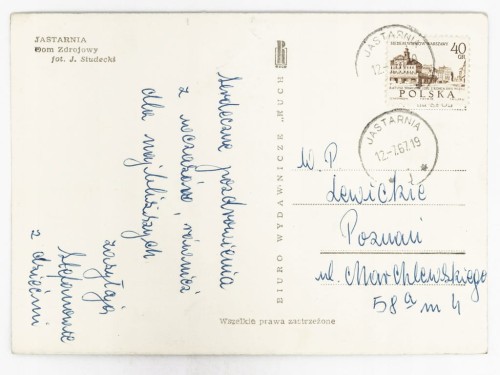 JASTARNIA
Dom Zdrojowy
fot. J. Siudecki
Serdeczne pozdrowienia
z wczasów, również
dla najbliższych
zasyłają
Stefanowie
z dziećmi
BIURO WYDAWNICZE „RUCH"
JASTARNIA
40
GR
POLSKA
JASTARNIA
12-7.67.19
W.P
Lewickie
Poznań
ul. Marchlewskiego
58a m 4
Wszelkie prawa zastrzeżone